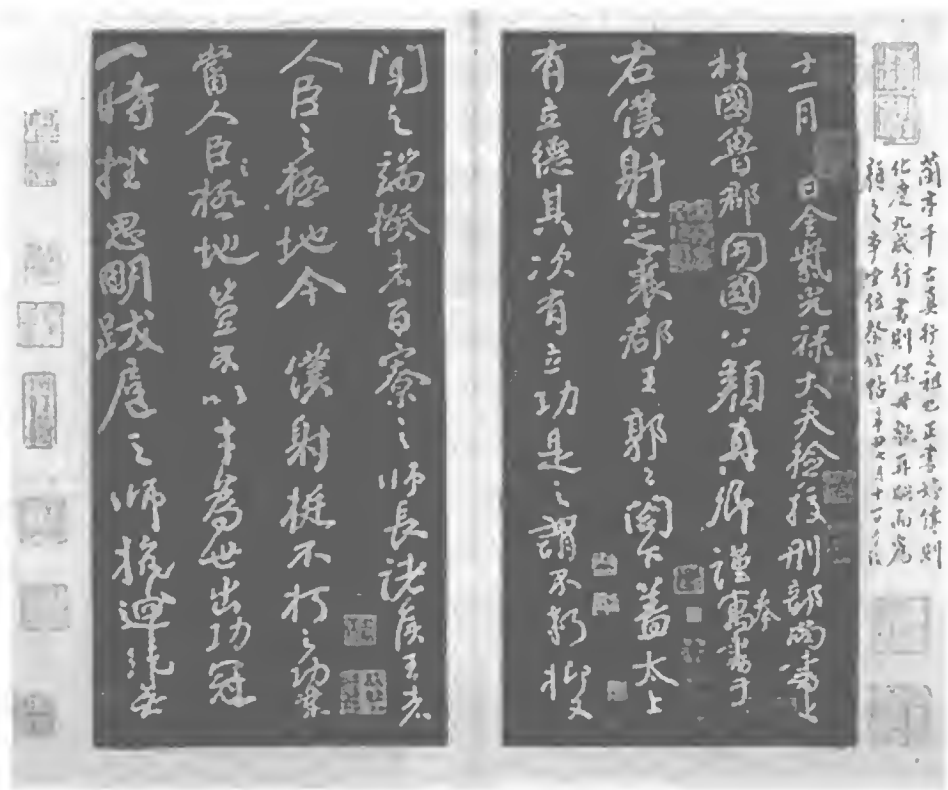 蘭亭千古真行之祖也正書則
化度九成行書則再而為
顏之爭坐位祭姪七月十
十一月 日金紫光祿大夫檢校刑部尚書上
柱國魯郡開國公顏真卿謹奉寓書于
右僕射定襄郡王郭公閣下蓋太上
有立德其次有立功是之謂不朽抑又
聞之端揆者百寮之師長諸侯王者
人臣之極地今 僕射挺不朽之功業
當人臣極地豈不以才為世出功冠
一時挫思明跋扈之師抗迴紇無